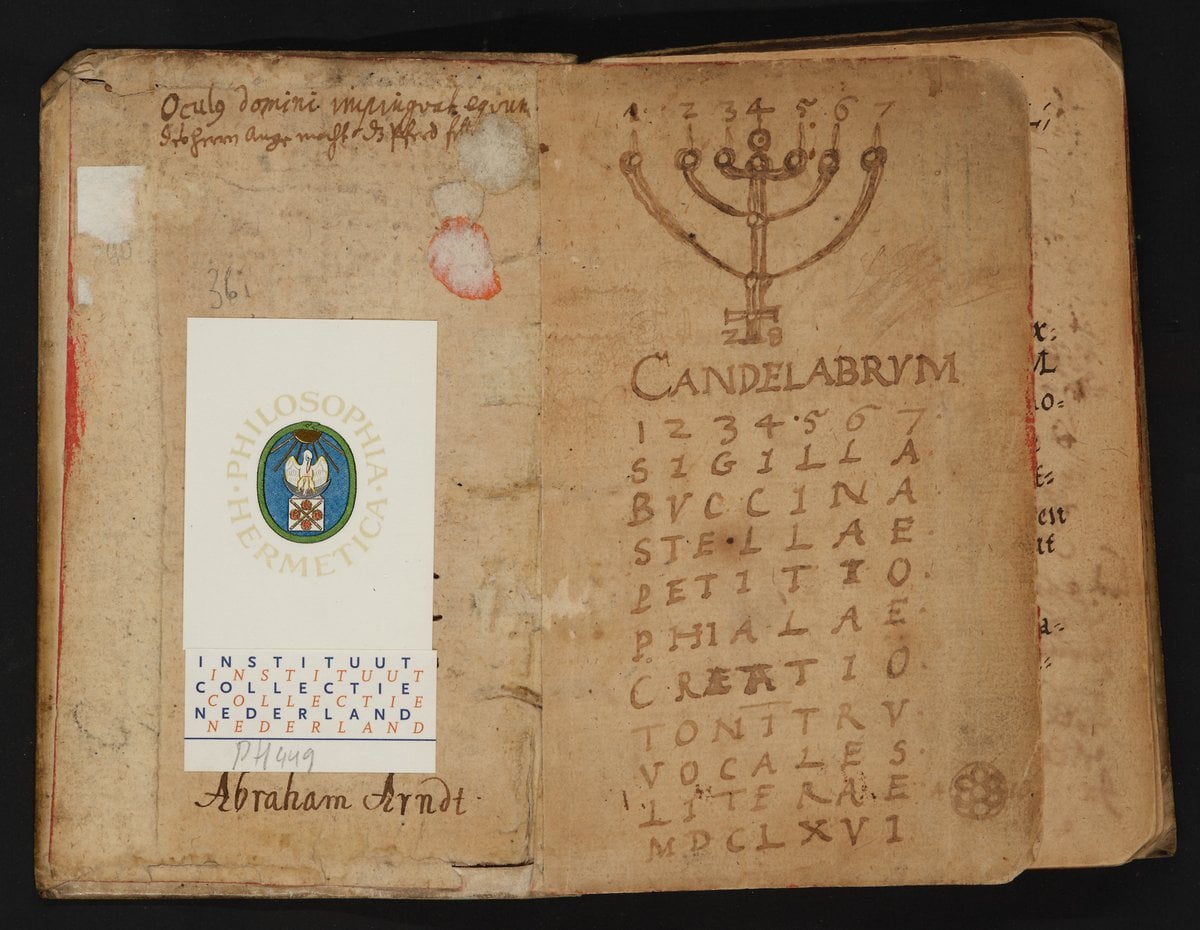 Oculus domini impinguat equum
deß herrn Auge macht dz Pferd
361
PHILOSOPHIA·HERMETICA·
INSTITUUT
INSTITUUT
COLLECTIE
COLLECTIE
NEDERLAND
NEDERLAND
PH449
Abraham Arndt
1 2 3 4 5 6 7
28
CANDELABRVM
1 2 3 4 5 6 7
SIGILLA
BVCCINA
STELLAE
PETITIO
PHIALAE
CREATIO
TONITRV
VOCALES
LITERAE
MDCLXVI
M
en